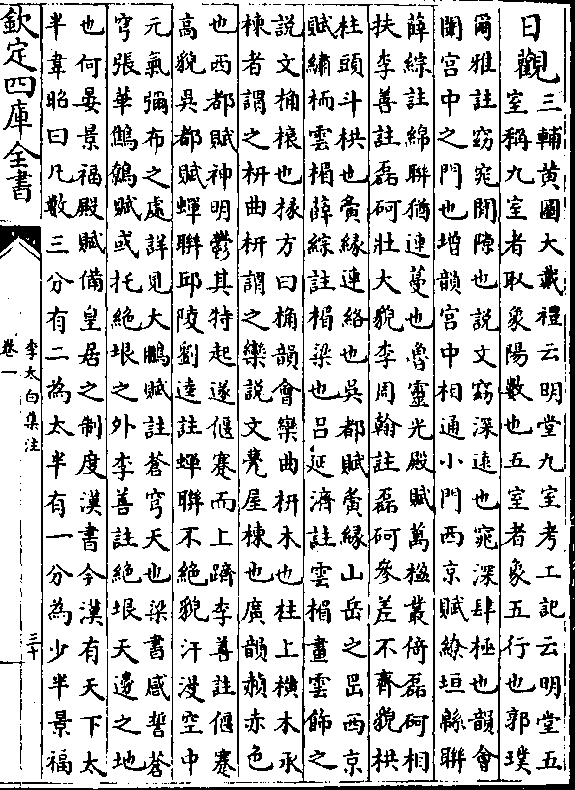 日觀
三輔黄圖大戴禮云明堂九室考工記云明堂五
室稱九室者取象陽數也五室者象五行也郭璞
爾雅註窈窕閒隙也説文窈深逺也窕深肆極也韻會
闈宫中之門也増韻宫中相通小門西京賦繚垣緜聯
薛綜註綿聯猶連蔓也魯靈光殿賦萬楹叢倚磊砢相
扶李善註磊砢壯大貌李周翰註磊砢參差不齊貌栱
柱頭斗栱也夤緣連絡也吳都賦夤緣山岳之岊西京
賦繡栭雲楣薛綜註楣梁也吕延濟註雲楣畫雲飾之
説文桷榱也椽方曰桷韻會欒曲枅木也柱上横木承
棟者謂之枅曲枅謂之欒説文甍屋棟也廣韻赬赤色
也西都賦神明鬱其特起遂偃蹇而上躋李善註偃蹇
高貌吳都賦蟬聯邱陵劉逵註蟬聯不絶貌汗漫空中
元氣彌布之處詳見大鵬賦註蒼穹天也梁書感誓蒼
穹張華鷦鷯賦或托絶垠之外李善註絶垠天邊之地
也何晏景福殿賦備皇居之制度漢書今漢有天下太
半韋昭曰凡數三分有二為太半有一分為少半景福
欽定四庫全書
李太白集注
卷一
三十